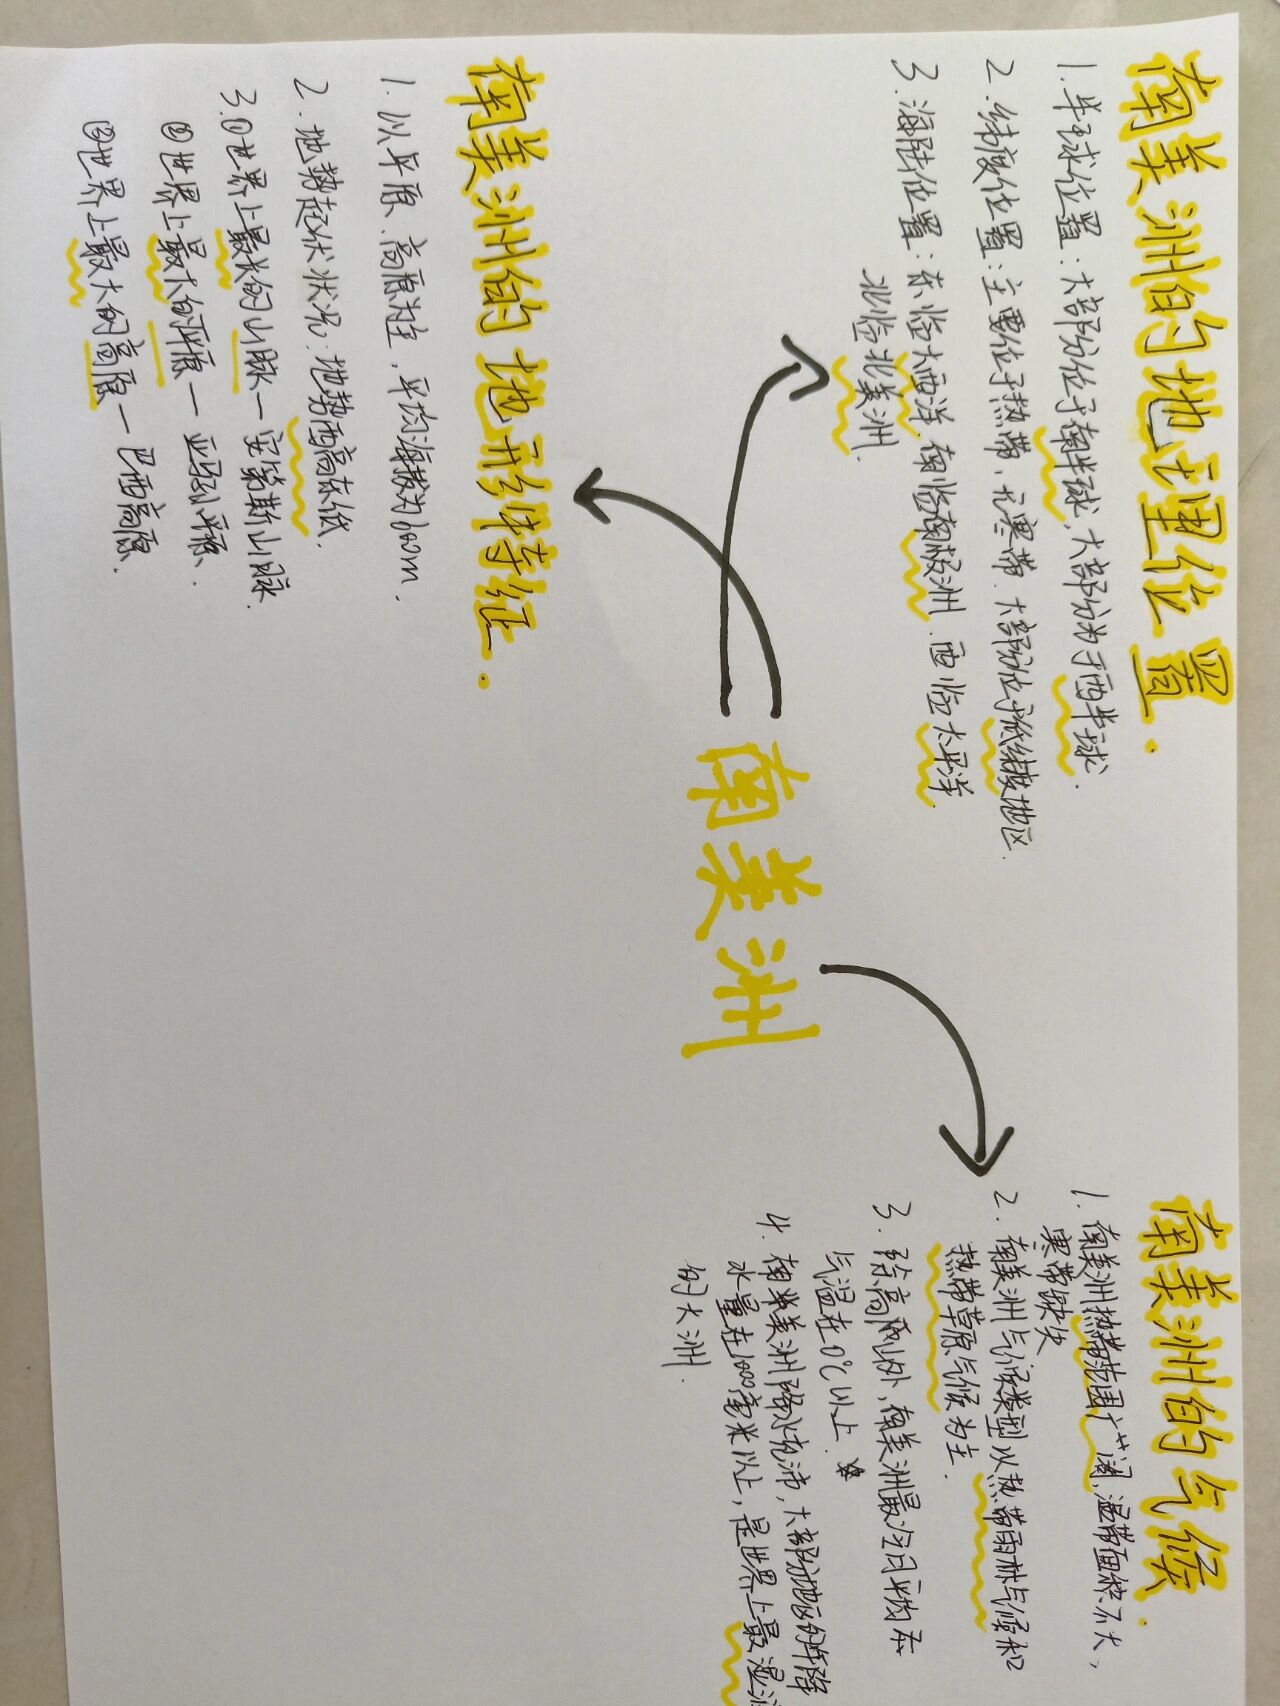 南美洲的地理位置.
1.半球位置:大部分位于南半球,大部分为于西半球
2.纬度位置:主要位于热带、无寒带.大部分位于低纬度地区.
3.海陆位置:东临大西洋.南临南极洲.西临太平洋
北临北美洲.
南美洲的地形特征.
1.以平原、高原为主,平均海拔为600m.
2.地势起伏状况:地势西高东低.
3.①世界上最长的山脉—安第斯山脉.
②世界上最大的平原—亚马孙平原.
③世界上最大的高原—巴西高原.
南美洲
南美洲的气候.
1.南美洲热带范围广阔,温带面积不大,
寒带缺失
2.南美洲气候类型以热带雨林气候和
热带草原气候为主.
3.除高原以外,南美洲最冷月平均
气温在0℃以上.
4.南美洲降水充沛,大部分地区的年降
水量在1000毫米以上,是世界上最湿润
的大洲.